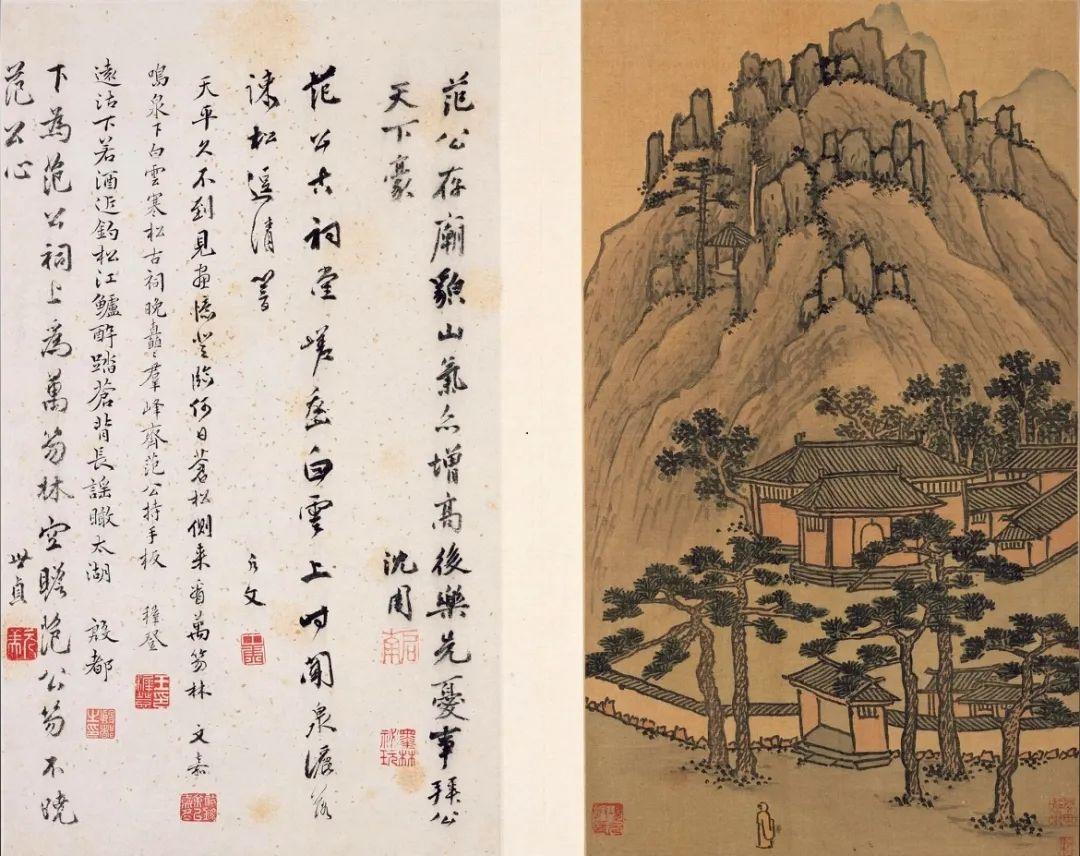 范公存廟貌山氣亦增高後樂先憂事拜公
天下豪 沈周
启南
墨林祕玩
范公古祠堂嵯峩白雲上时聞泉瀑落
疎松逗清響 允文
天平久不到見畫憶登臨何日蒼松側来看萬笏林 文嘉
鳴泉下白雲寒松古祠晚矗〻羣峰齊范公持手板 穉登
遠沽下若酒近釣松江鱸醉踏蒼背長謡瞰太湖 殷都
下為范公祠上為萬笏林空瞻范公笏不曉
范公心 世貞
元美